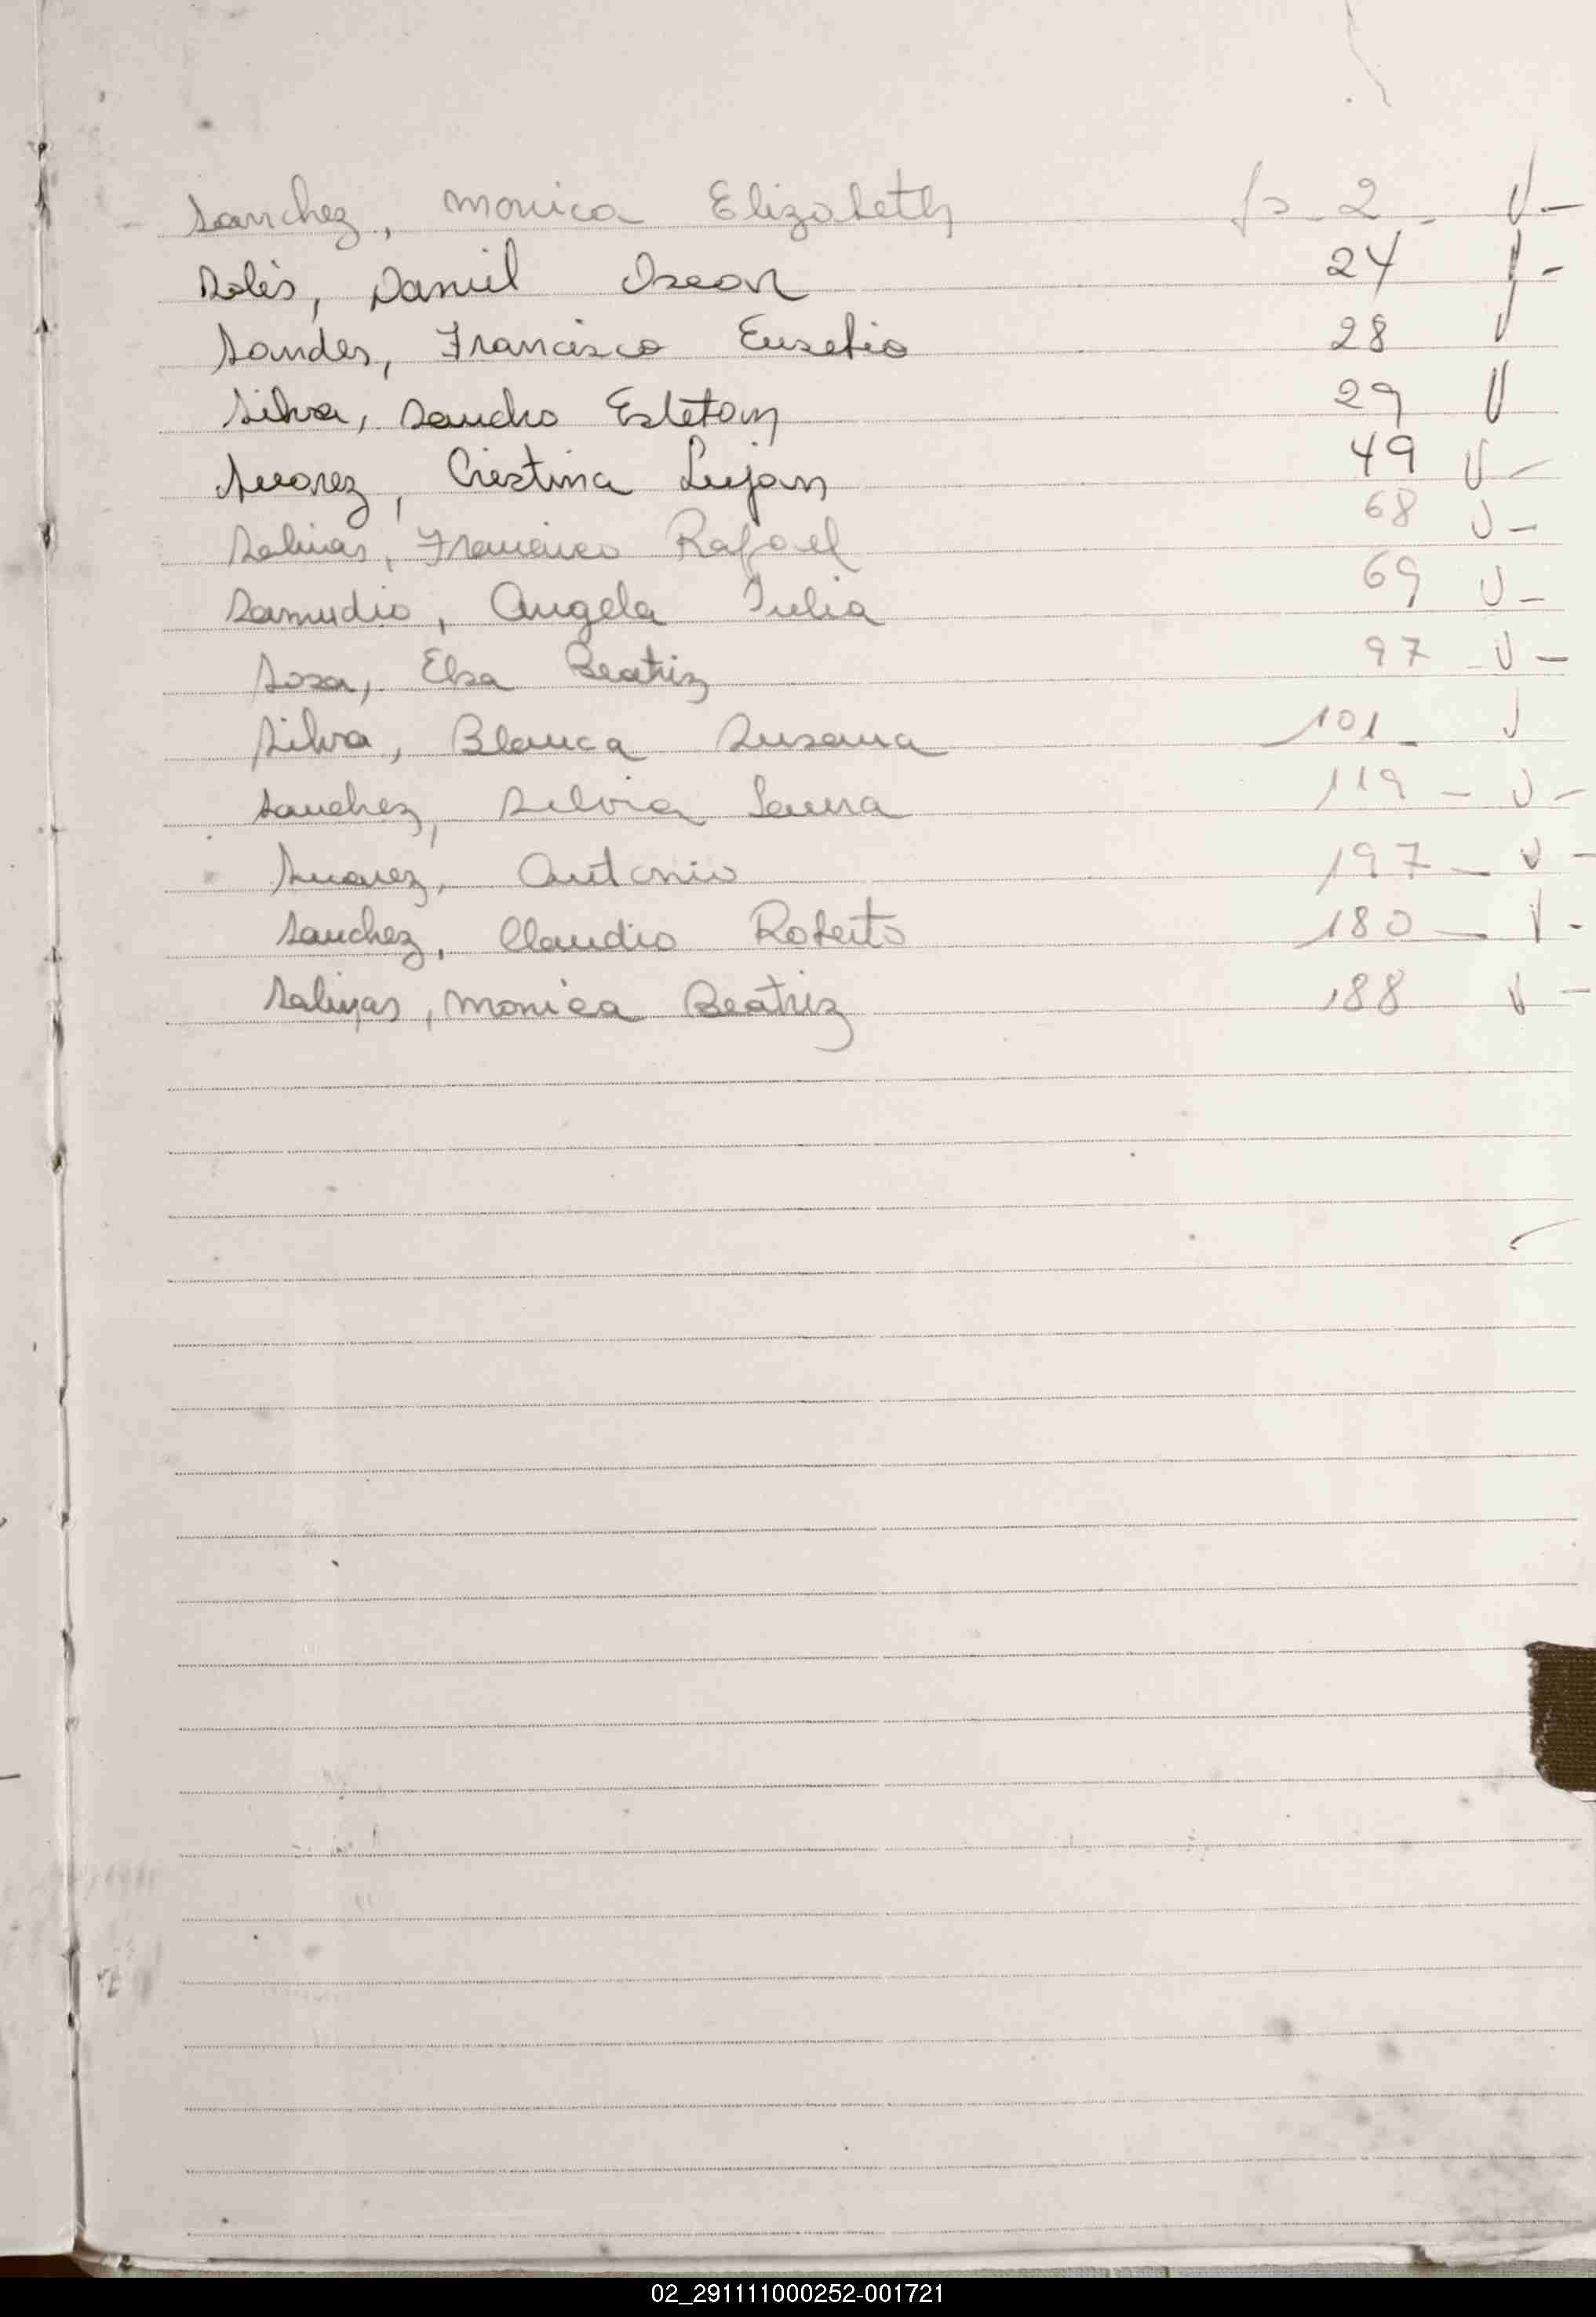 Sanchez, Monica Elizabeth fs. 2. V-
Solis, Daniel Oscar 24 V-
Sandes, Francisco Eusebio 28 V
Silva, Sandro Esteban 29 V
Suarez, Cristina Lujan 49 V-
Salinas, Francisco Rafael 68 V-
Samudio, Angela Julia 69 V-
Sosa, Elsa Beatriz 97 - V -
Silva, Blanca Susana 101 - V
Sanchez, Silvia Laura 119 - V -
Suarez, Antonio 197 - V -
Sanchez, Claudio Roberto 180 - V -
Salinas, Monica Beatriz 188 V -
02_291111000252-001721